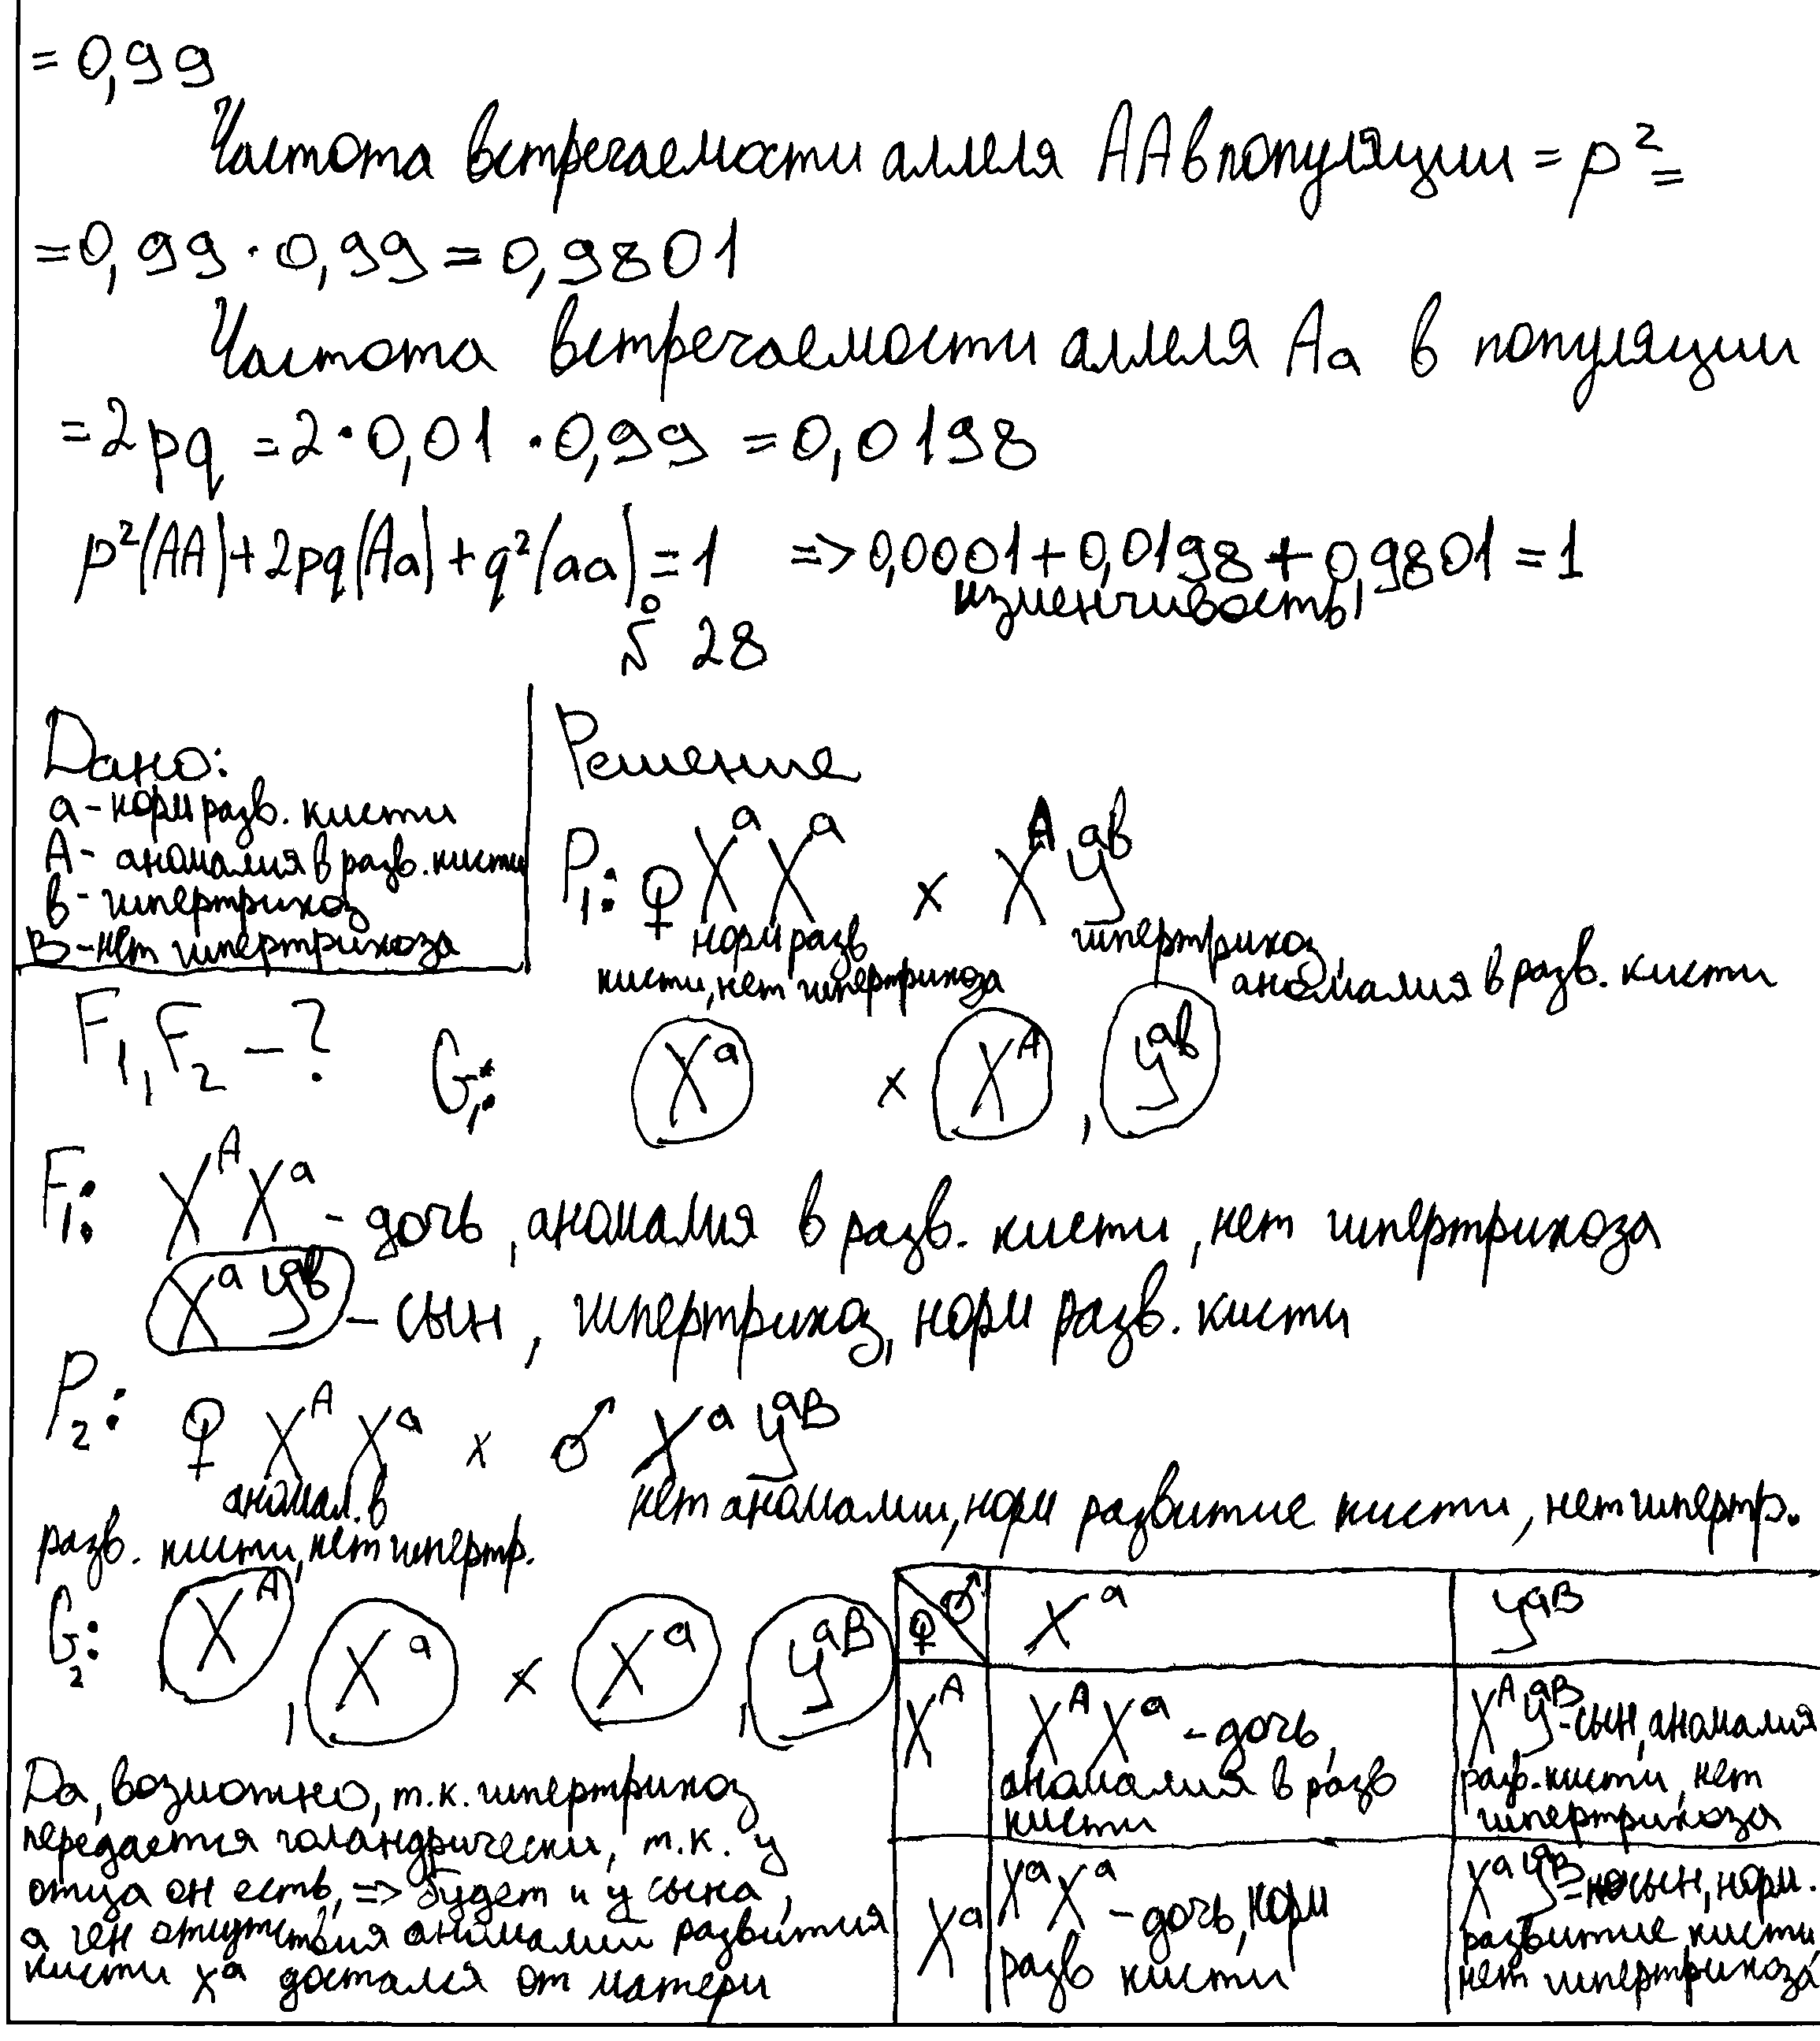 = 0,99
Частота встречаемости аллеля AA в популяции = p² =
= 0,99 · 0,99 = 0,9801
Частота встречаемости аллеля Aa в популяции
= 2pq = 2 · 0,01 · 0,99 = 0,0198
p²(AA) + 2pq(Aa) + q²(aa) = 1 => 0,0001 + 0,0198 + 0,9801 = 1
изменчивость
28
Дано:
a - норм разв. кисти
A - аномалия в разв. кисти
в - гипертрихоз
В - нет гипертрихоза
F₁, F₂ - ?
Решение
P₁: ♀ XᵃXᵃ x XᴬYᵃᵇ
норм разв кисти, нет гипертрихоза
гипертрихоз, аномалия в разв. кисти
G₁: Xᵃ x Xᴬ, Yᵃᵇ
F₁: XᴬXᵃ - дочь, аномалия в разв. кисти, нет гипертрихоза
XᵃYᵃᵇ - сын, гипертрихоз, норм разв. кисти
P₂: ♀ XᴬXᵃ x ♂ XᵃYᵃᴮ
аномал. в разв. кисти, нет гипертр.
нет аномалии, норм развитие кисти, нет гипертр.
G₂: Xᴬ, Xᵃ x Xᵃ, Yᵃᴮ
♀ ♂ Xᵃ Yᵃᴮ
Xᴬ
XᴬXᵃ - дочь, аномалия в разв кисти
XᴬYᵃᴮ - сын, аномалия разв. кисти, нет гипертрихоза
Xᵃ
XᵃXᵃ - дочь, норм разв кисти
XᵃYᵃᴮ - сын, норм. развитие кисти, нет гипертрихоза
Да, возможно, т.к. гипертрихоз
передается голандрически, т.к. у
отца он есть, => будет и у сына,
а ген отсутствия аномалии развития
кисти Xᵃ достался от матери